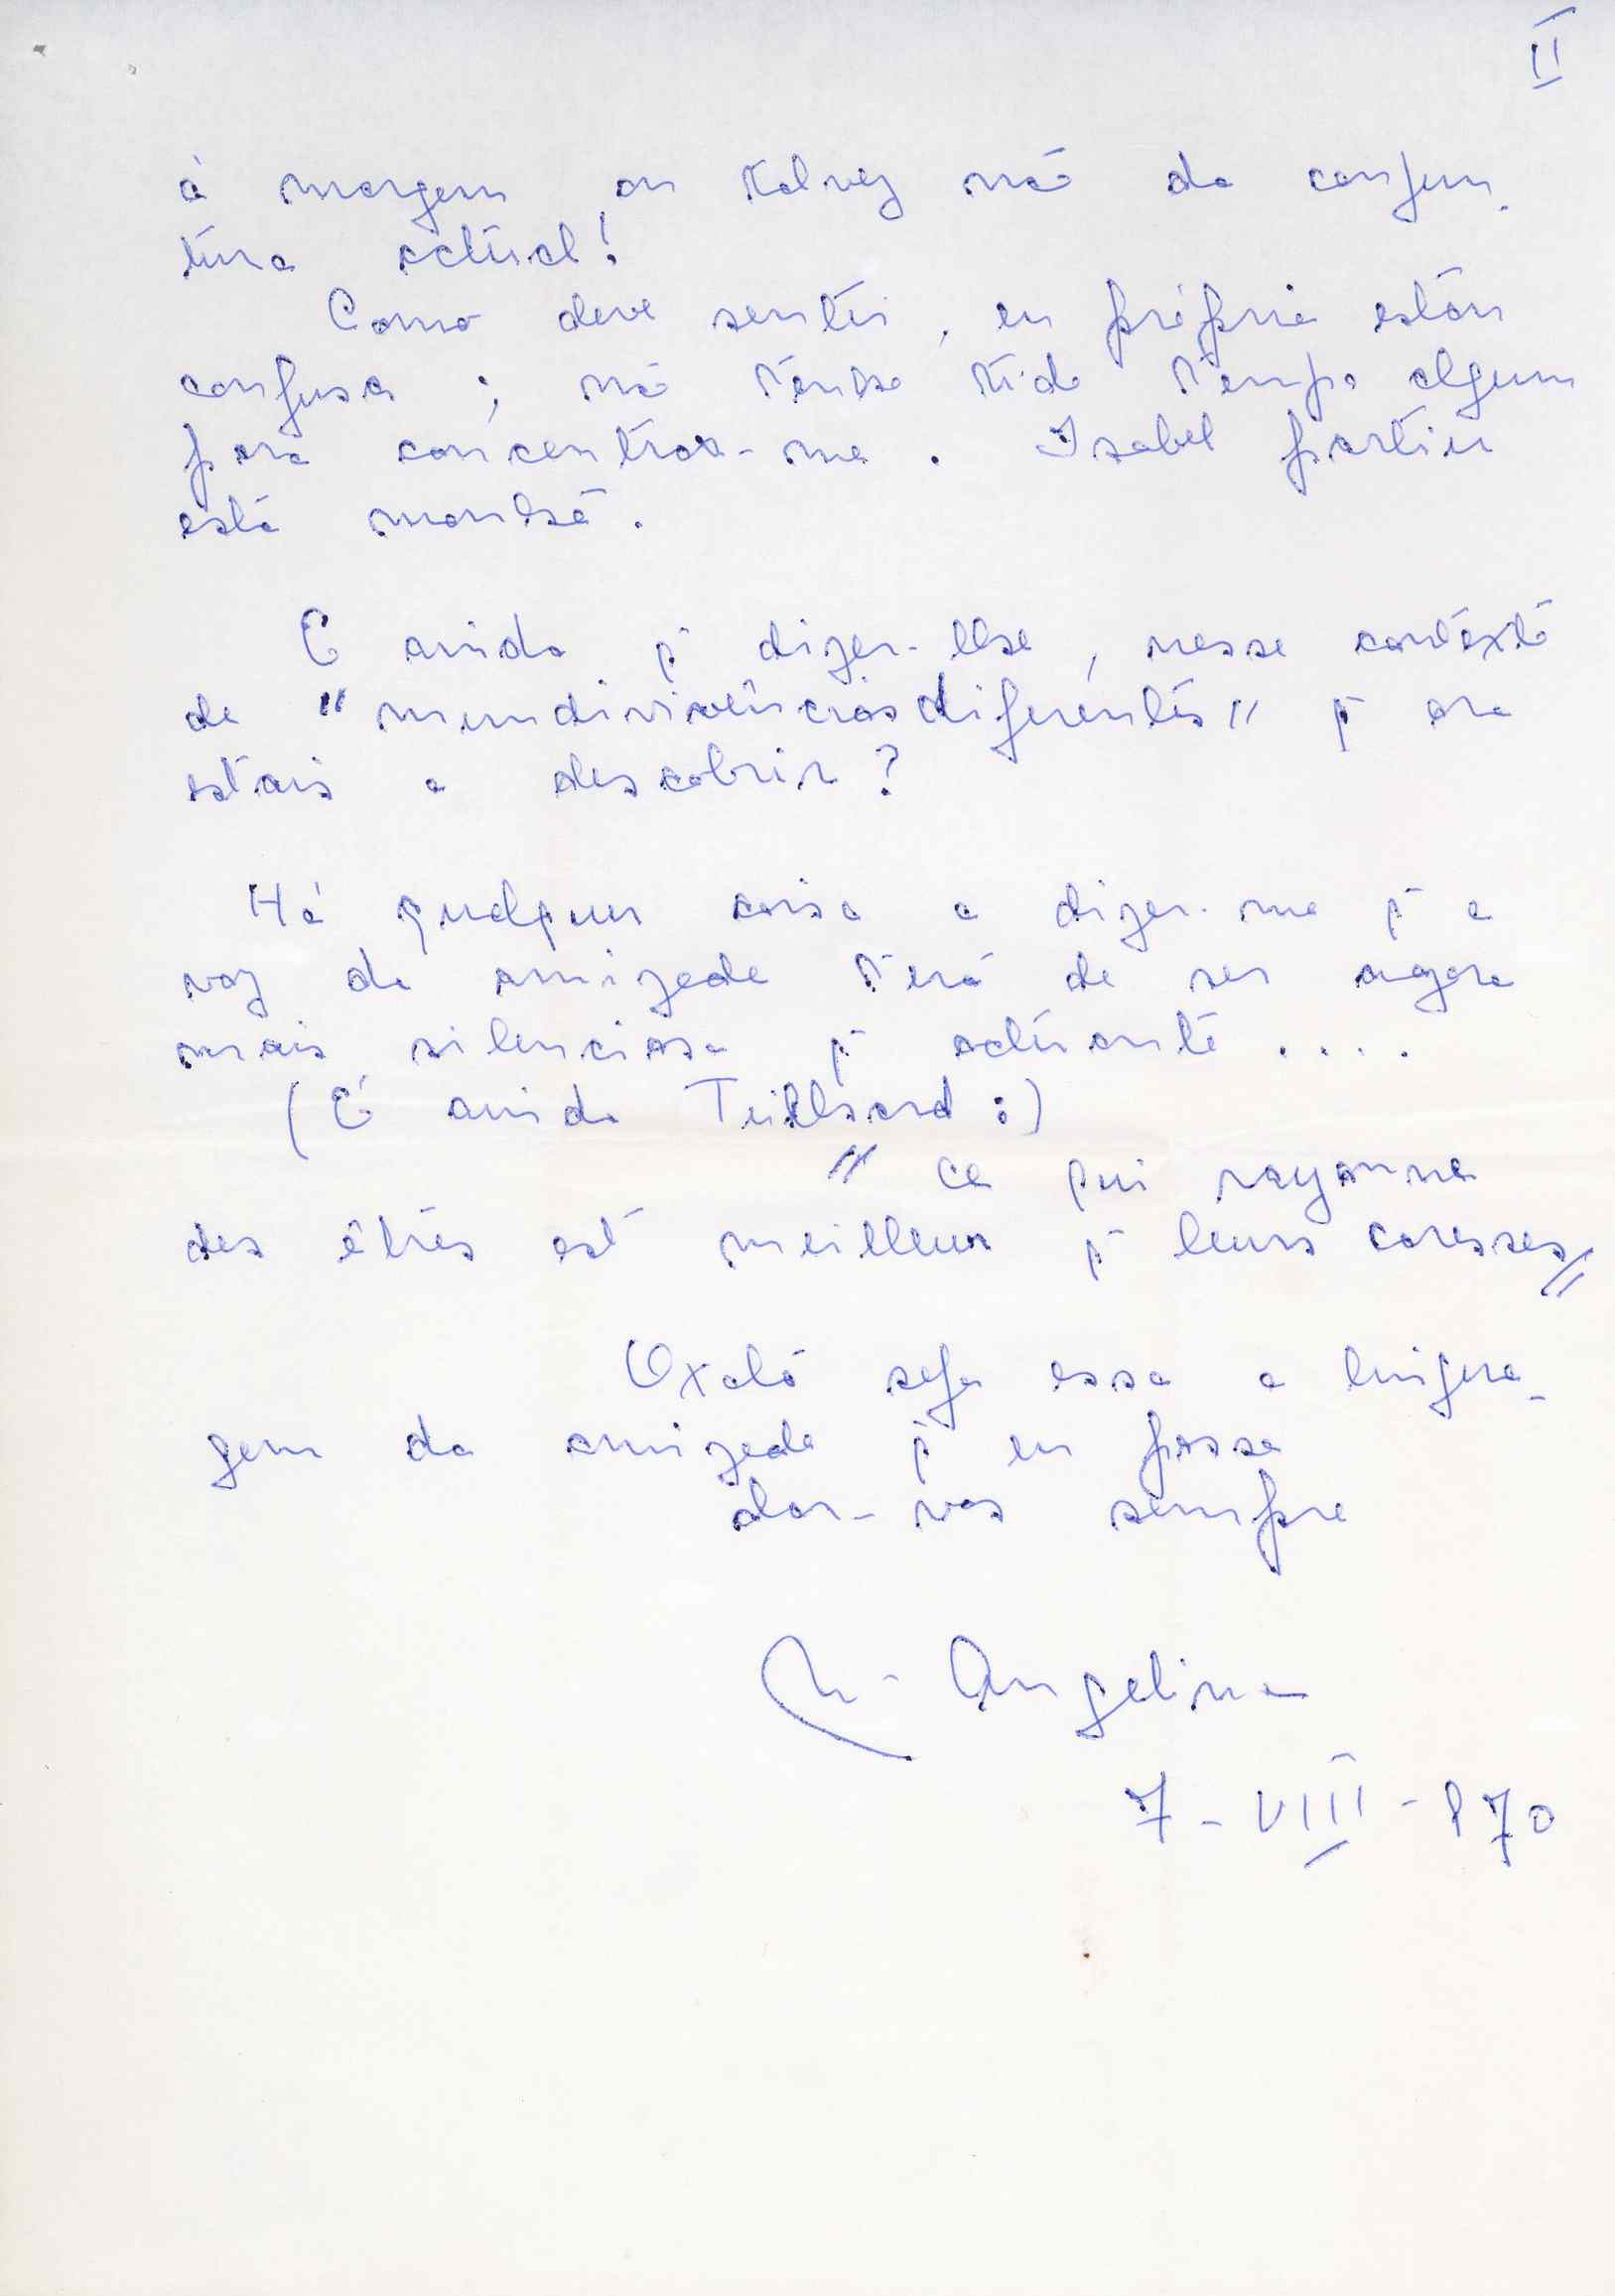 II
à margem ou talvez não da conjun-
tura actual!
Como deve sentir, eu própria estou
confusa; não tenho tido tempo algum
para concentrar-me. Isabel partiu
esta manhã.
E ainda q̃ dizer-lhe, nesse contexto
de "mundivivências diferentes" q̃ ora
estais a descobrir?
Há qualquer coisa a dizer-me q̃ a
voz da amizade terá de ser agora
mais silenciosa q̃ actuante....
(É ainda Teilhard:)
"Ce qui rayonne
des êtres est meilleur q̃ leurs caresses"
Oxalá seja essa a lingua-
gem da amizade q̃ eu possa
dar-vos sempre
M. Angelina
7-VIII-970